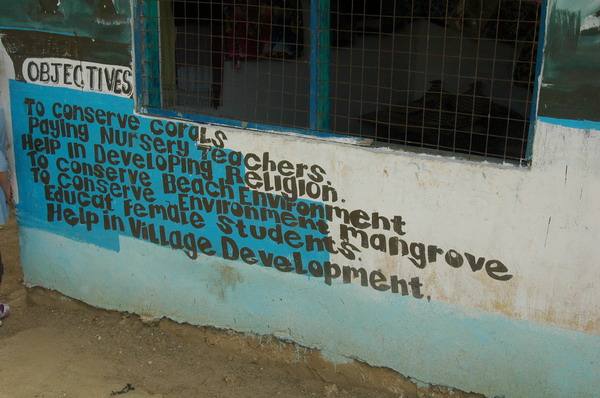 OBJECTIVES
To conserve corals
Paying Nursery Teachers.
Help in Developing Religion.
To conserve Beach Environment
To conserve Environment mangrove
Educat Female Students.
Help in Village Development.